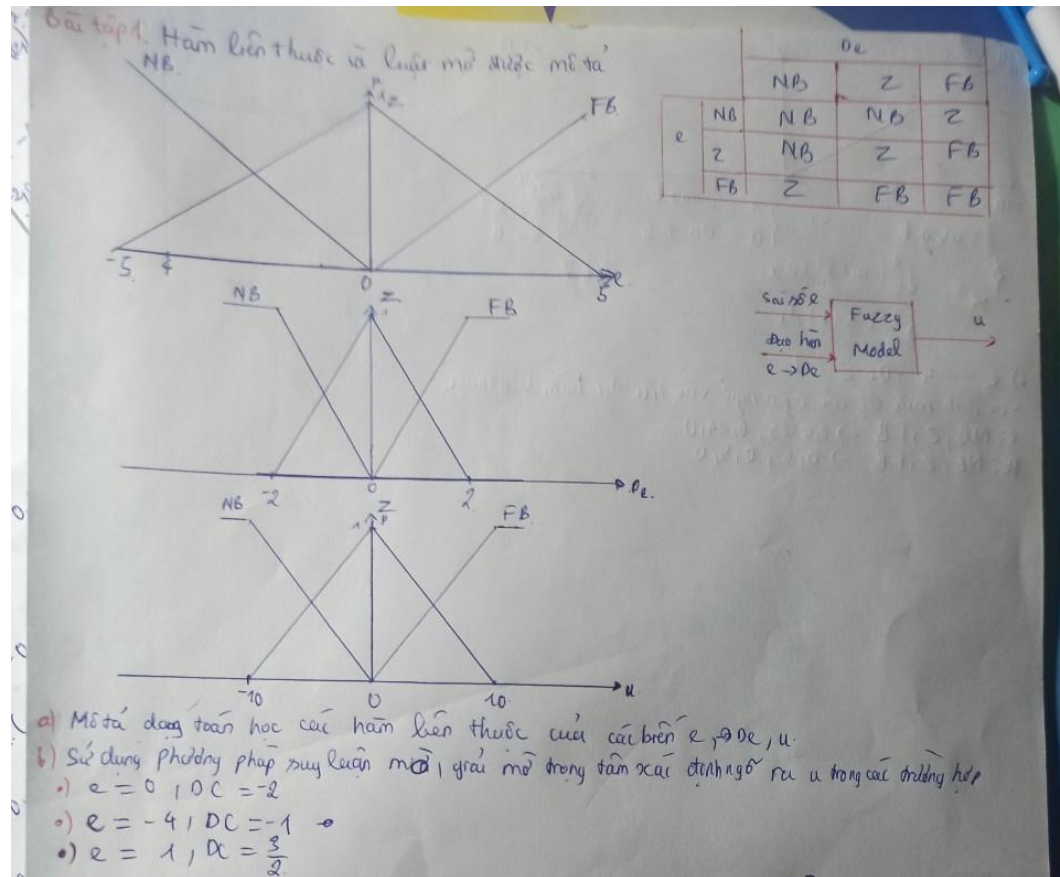 Bài tập 1. Hàm liên thuộc và luật mờ được mô tả
NB
μ
1 Z
FB
-5
4
0
5
e
NB
Z
1
FB
-2
0
2
De.
NB
Z
1
FB
-10
0
10
u
De
NB Z FB
e NB NB NB Z
Z NB Z FB
FB Z FB FB
Sai số e
Đạo hàm
e → De
Fuzzy
Model
u
a) Mô tả dạng toán học các hàm liên thuộc của các biến e, De, u.
b) Sử dụng phương pháp suy luận mờ, giải mờ trọng tâm xác định ngõ ra u trong các trường hợp
•) e = 0, DC = -2
•) e = -4, DC = -1
•) e = 1, DC = 3/2